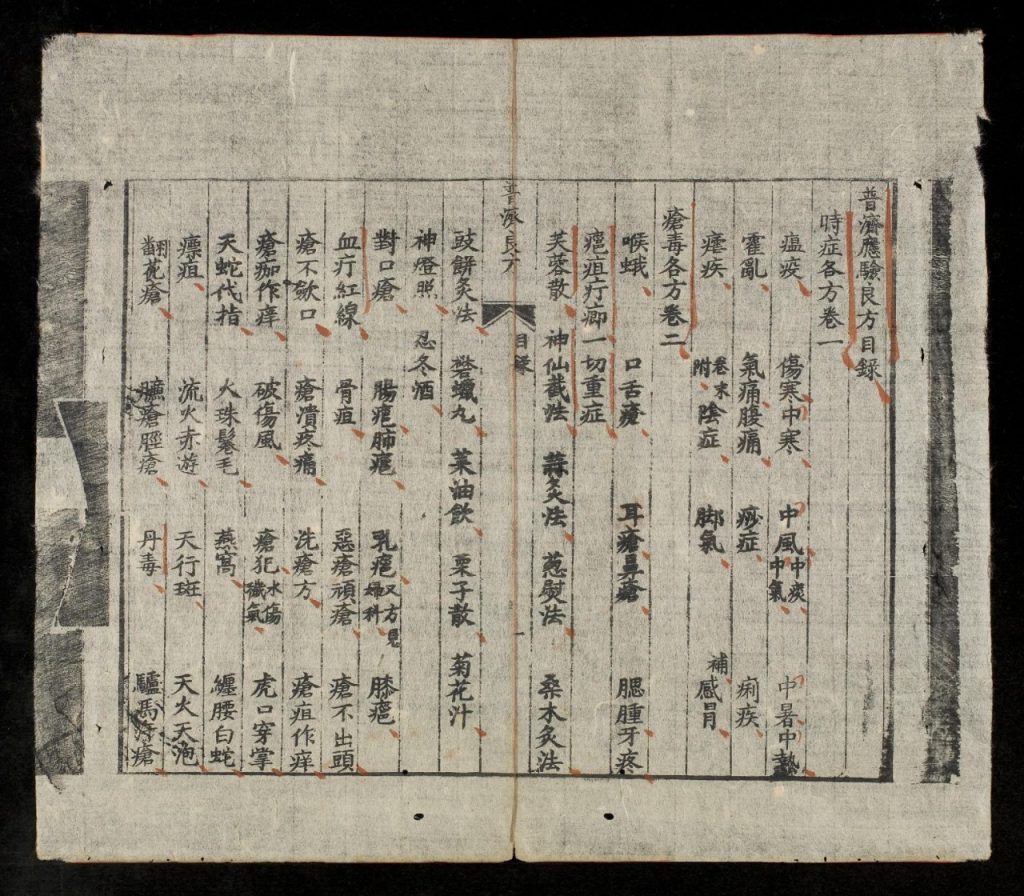 普濟應驗良方目錄
時症各方卷一
瘟疫 傷寒中寒 中風中痰中氣 中暑中熱
霍亂 氣痛腹痛 痧症 痢疾
瘧疾 卷末附陰症 脚氣 補感冒
瘡毒各方卷二
喉蛾 口舌瘡 耳瘡鼻瘡 腮腫牙疼
㿈疽疔癤一切重症
芙蓉散 神仙截法 蒜灸法 葱熨法 桑木灸法
普濟良方 目錄 一
豉餅灸法 礬蠟丸 菜油飲 栗子散 菊花汁
神燈照 忍冬酒
對口瘡 腸㿈肺㿈 乳㿈又方見婦科 膝㿈
血疔紅線 骨疽 惡瘡頑瘡 瘡不出頭
瘡不歛口 瘡潰疼痛 洗瘡方 瘡疽作痒
瘡痂作痒 破傷風 瘡犯水傷穢氣 虎口穿掌
天蛇代指 火珠鬈毛 燕窩 纏腰白蛇
瘭疽 流火赤遊 天行斑 天火天泡
翻花瘡 臁瘡脛瘡 丹毒 驢馬汗瘡